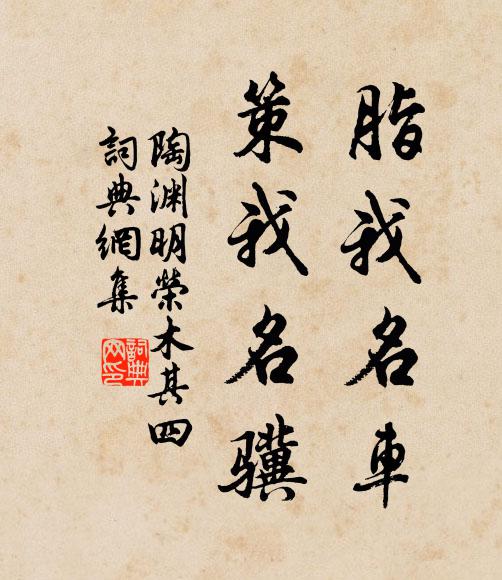 脂我名車
策我名骥
陶渊明榮木其四
詞典網集
詞典
网印